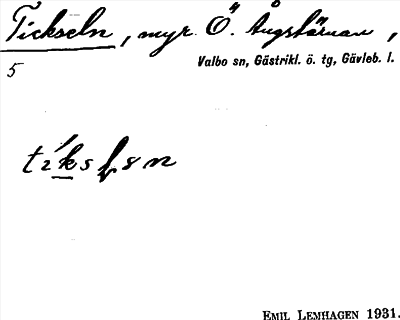 Tickseln, myr Ö. Ångstärnan,
Valbo sn, Gästrikl. ö. tg, Gävleb. l.
5
EMIL LEMHAGEN 1931.